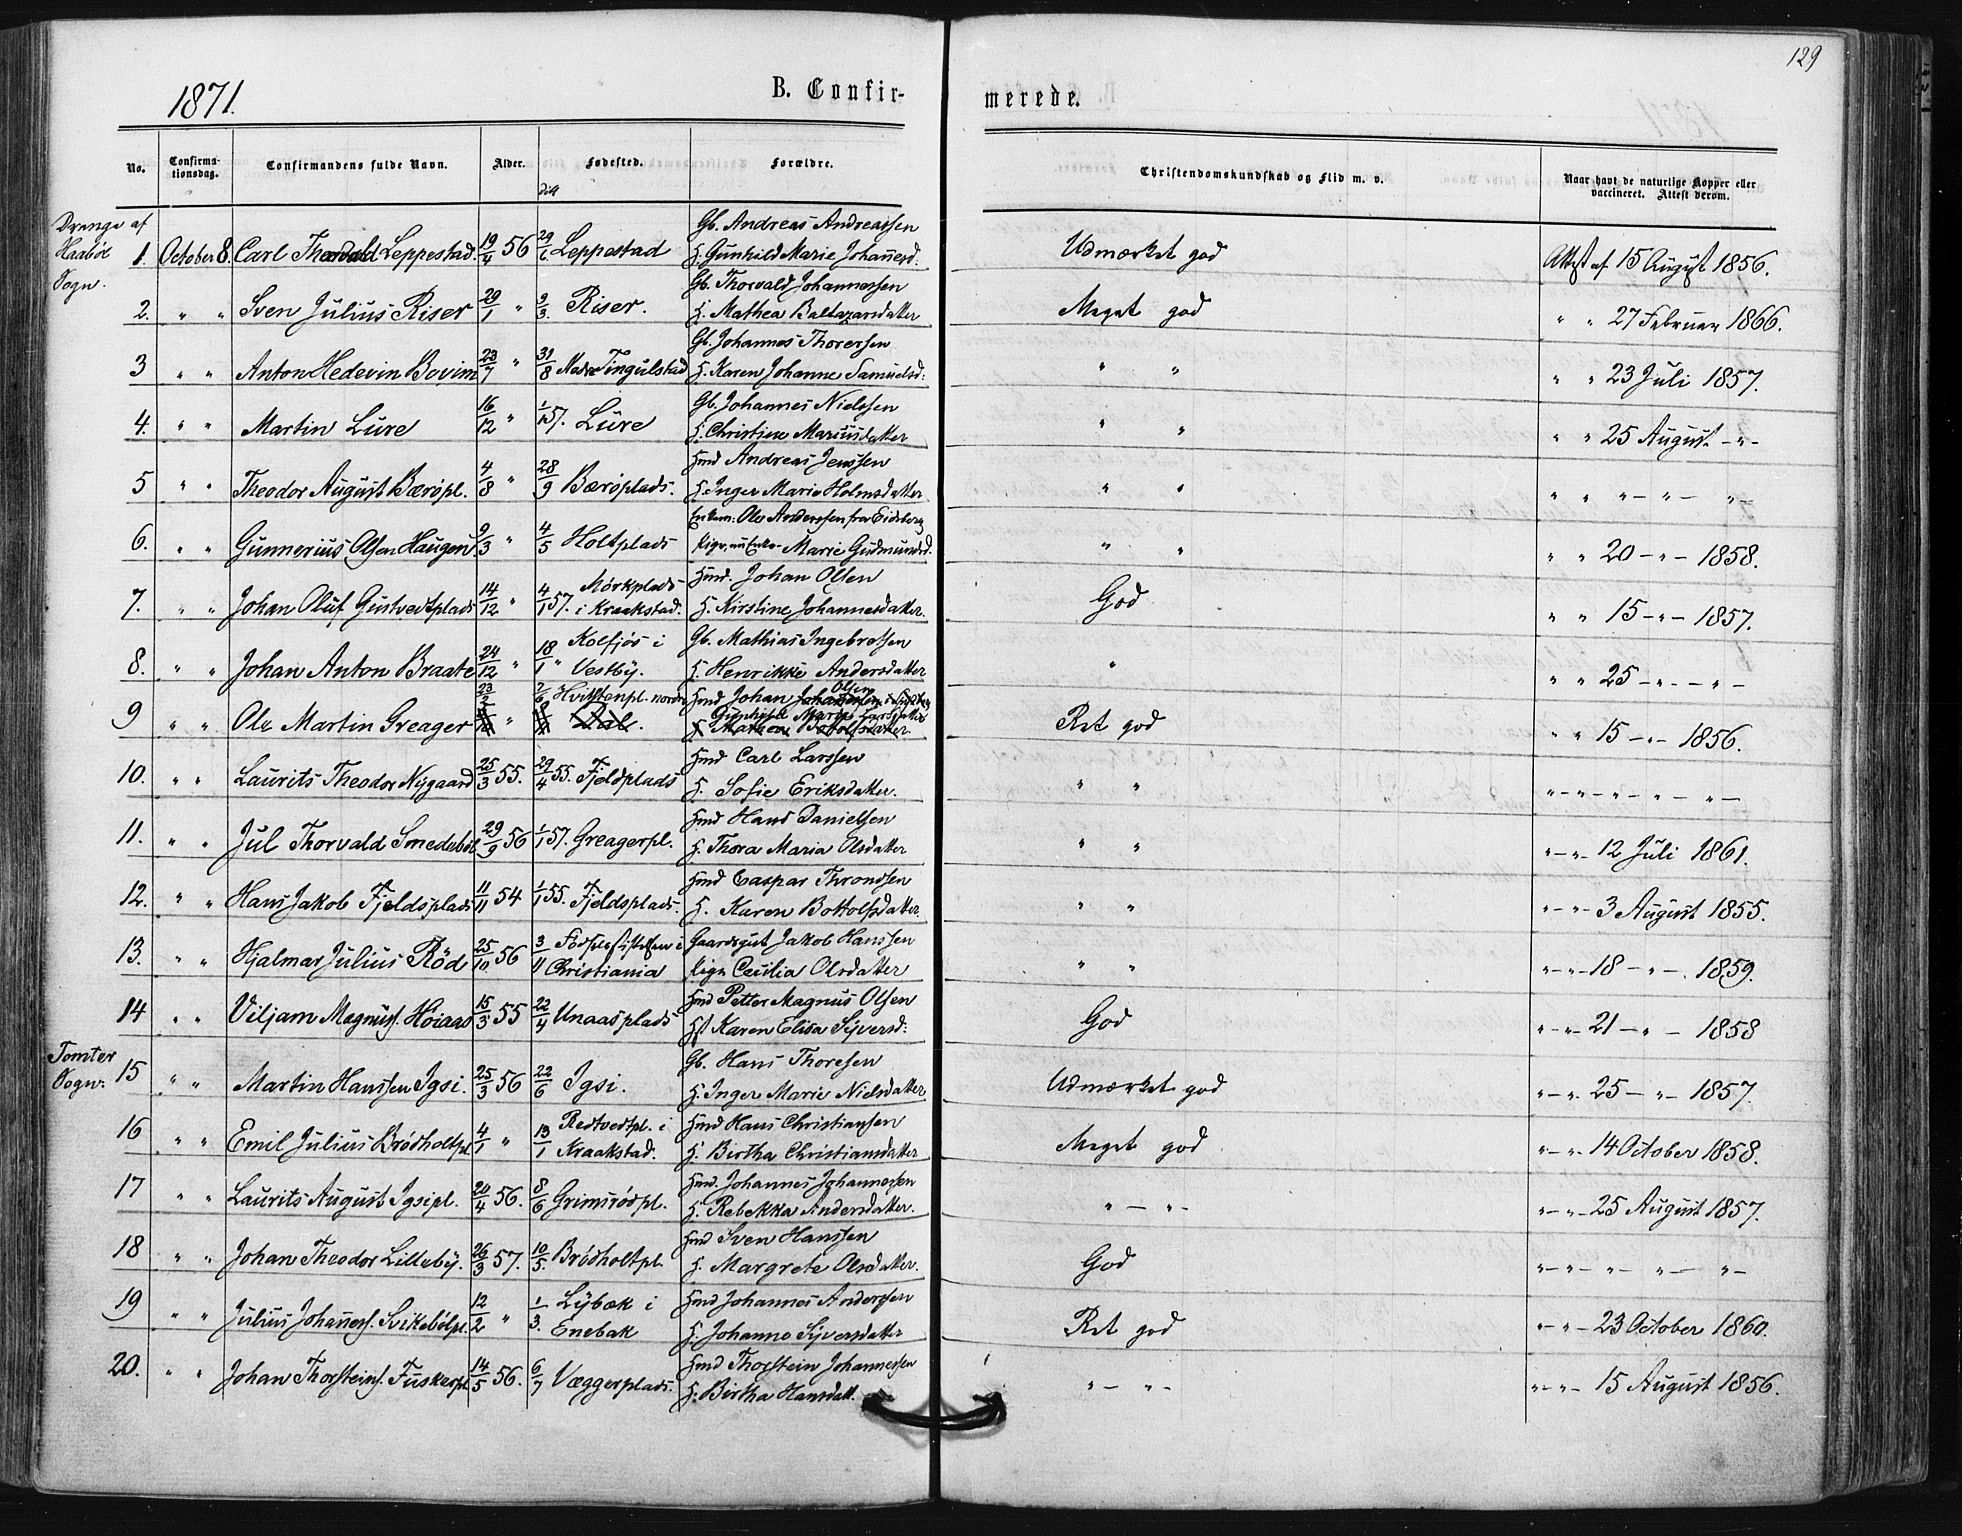 129
1871.
B. Confirmerede.
No. Confirmationsdag. Confirmandens fulde Navn. Alder. Fødested. Forældre. Christendomskundskab og Flid m. v. Naar havt de naturlige Kopper eller vaccineret. Attest derom.
Drenge af Haabøl Sogn.
Gb. Andreas Andreassen
1. October 8. Carl Thorvald Leppestad. 19/4 56 29/6 Leppestad H. Gunhild Marie Johannesd: Udmærket god Attest af 15 August 1856.
Gb. Thorvald Johannessen
2. " " Sven Julius Riser 29/1 " 9/3 Riser. H. Mathea Baltazarsdatter Meget god " " 27 Februar 1866.
Gb. Johannes Thorersen
3 " " Anton Hedevin Bovim 23/7 " 31/8 Nedre Tingulstad H. Karen Johanne Samuelsd: " " " " 23 Juli 1857.
Gb. Johannes Nielsen
4. " " Martin Lure 16/12 " 1/1 57. Lure H. Christine Mariusdatter " " " " 25 August - " -
Hmd Andreas Jenssen
5 " " Theodor August Bæröpl. 4/8 " 28/9 Bæröplads. H. Inger Marie Holmsdatter " " " " " - " - " -
Ole Anderssen fra Eidsberg
6. " " Gunnerius Olsen Haugen 9/3 " 4/5 Holtplads Pige, nu Enke - Marie Gudmundsd. " " " " 20 - " - 1858.
Mörkplads Hmd. Johan Olsen
7. " " Johan Oluf Gustvedtplads 14/12 " 4/1 57. i Kraakstad. H. Kirstine Johannesdatter. God " " 15 - " - 1857.
Kolfjös i Gb. Mathias Ingebretsen
8. " " Johan Anton Braate 24/12 " 18/1 " Vestby. H. Henrikke Andersdatter " " " 25 - " - " -
23/2 7/6 Hvitstenpl. nordre Hmd Johan Olsen
9 " " Ole Martin Greager " Dal. Gunhild Marie Larsdatter Ret god " " 15 - " - 1856.
Hmd Carl Larssen
10. " " Laurits Theodor Nygaard 25/3 55. 29/4 55. Fjeldplads H. Sofie Eriksdatter. " " " - " - " - " - " -
Hmd Hans Danielsen
11. " " Jul Thorvald Smedsböl 29/9 56 1/1 57. Greagerpl. H. Thora Maria Olsdatter " " " - " - 12 Juli 1861.
Hmd Caspar Throndsen
12. " " Hans Jakob Fjeldsplads 11/11 54 1/1 55. Fjeldsplads. H. Karen Bottolfsdatter. " " " - " - 3 August 1855.
Födselsstiftelsen i Gaardsgut Jakob Hanssen
13. " " Hjalmar Julius Röd 25/10 56 3/11 Christiania Pige Cecilia Olsdatter " " " - " - 18 - " - 1859.
Hmd Petter Magnus Olsen
14 " " Viljam Magnuss. Höiaas 15/3 55 22/4 Unaasplads Karen Elisa Syversd: God " - " - 21 - " - 1858
Tomter Sogn:
Gb. Hans Thoresen
15 " " Martin Hanssen Igsi. 25/3 56 22/6 Igsi. H. Inger Marie Nielsdatter Udmærket god " - " - 25 - " - 1857.
Redtvedtpl. i Hmd Hans Christiansen
16 " " Emil Julius Brödholtpl 4/1 " 13/1 Kraakstad. H. Birtha Christiansdatter Meget god " - " - 14 October 1858.
Hmd. Johannes Johannessen
17 " " Laurits August Igsipl. 20/4 56. 8/6 Grimsrödpl. H. Rebekka Andersdatter. " - " - " - " - 25 August 1857.
Hmd Sven Hanssen
18 " " Johan Theodor Lilleby. 26/3 57. 10/5. Brödholtpl. H. Margrete Olsdatter. God " - " - " - " - " -
Lybæk i Hmd Johannes Anderssen
19 " " Julius Johanness. Svikebölpl. 12/2 " 1/3. Enebak H. Johanne Syversdatter Ret god " - " - 23 October 1860.
Hmd Thorstein Johannessen
20. " " Johan Thorsteins. Fuskerpl. 14/5 56. 6/7 Væggerplads. H. Birtha Hansdatt. " - " - " - " - 15 August 1856.